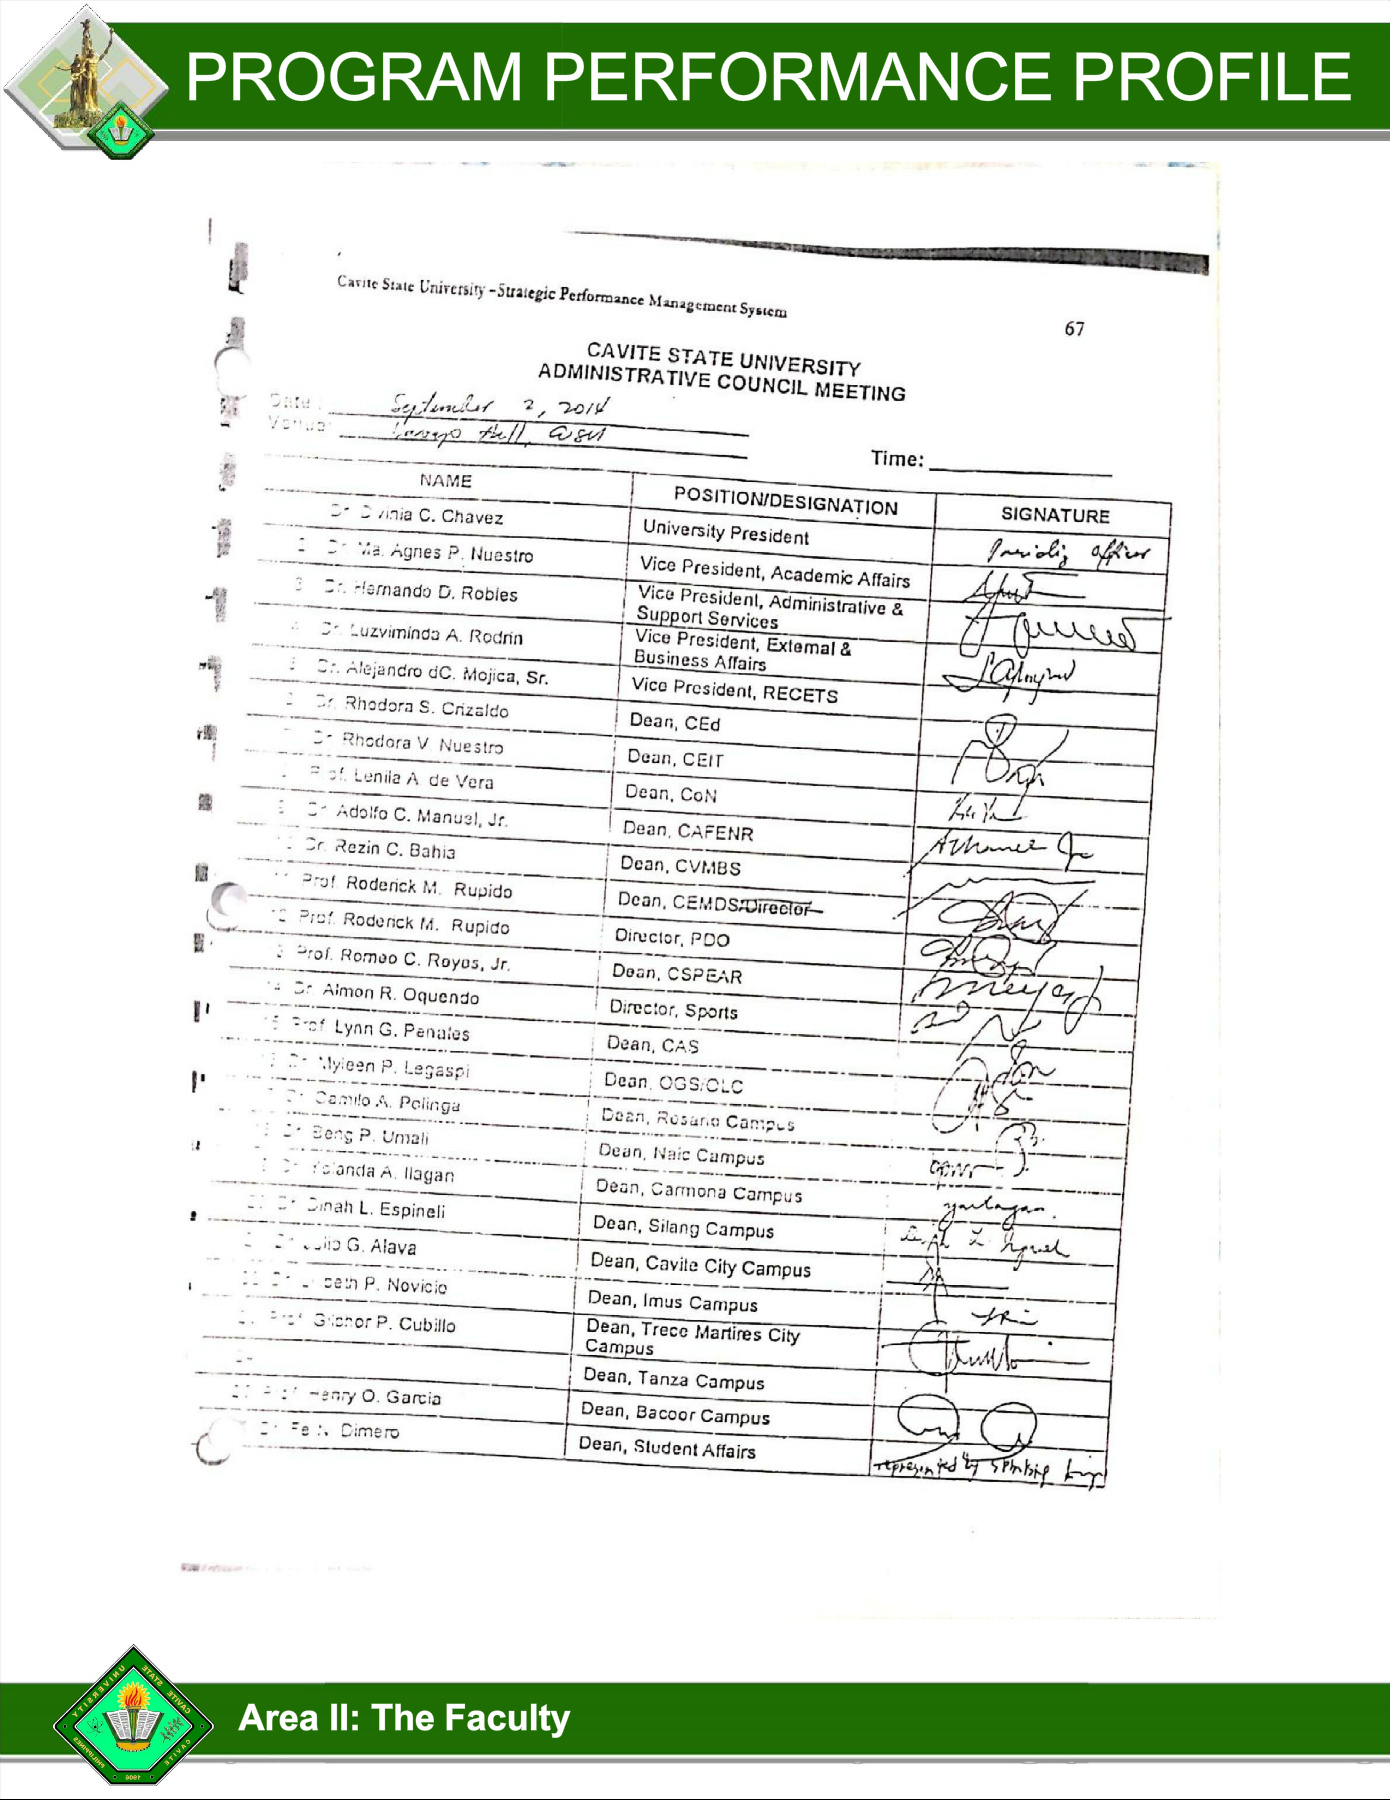 PROGRAM PERFORMANCE PROFILE
Cavite State University - Strategic Performance Management System
67
CAVITE STATE UNIVERSITY
ADMINISTRATIVE COUNCIL MEETING
Date: September 2, 2014
Venue: Hall, CvSU
Time:
NAME POSITION/DESIGNATION SIGNATURE
Dr. Divinia C. Chavez University President Presiding Officer
2 Dr. Ma. Agnes P. Nuestro Vice President, Academic Affairs
3 Dr. Hernando D. Robles Vice President, Administrative &
Support Services
4 Dr. Luzviminda A. Rodrin Vice President, External &
Business Affairs
5 Dr. Alejandro dC. Mojica, Sr. Vice President, RECETS
Dr. Rhodora S. Crizaldo Dean, CEd
Dr. Rhodora V. Nuestro Dean, CEIT
Prof. Lenila A. de Vera Dean, CoN
9 Dr. Adolfo C. Manuel, Jr. Dean, CAFENR
Dr. Rezin C. Bahia Dean, CVMBS
11 Prof. Roderick M. Rupido Dean, CEMDS/Director
12 Prof. Roderick M. Rupido Director, PDO
3 Prof. Romeo C. Reyes, Jr. Dean, CSPEAR
14 Dr. Almon R. Oquendo Director, Sports
15 Prof. Lynn G. Penales Dean, CAS
Dr. Myleen P. Legaspi Dean, OGS/OLC
Dr. Camilo A. Polinga Dean, Rosario Campus
Dr. Beng P. Umali Dean, Naic Campus
Dr. Yolanda A. Ilagan Dean, Carmona Campus
Dr. Dinah L. Espineli Dean, Silang Campus
G. Alava Dean, Cavite City Campus
P. Novicio Dean, Imus Campus
Prof. Gilchor P. Cubillo Dean, Trece Martires City
Campus
Dean, Tanza Campus
Prof. Henry O. Garcia Dean, Bacoor Campus
Dr. Fe N. Dimero Dean, Student Affairs represented by
Area II: The Faculty